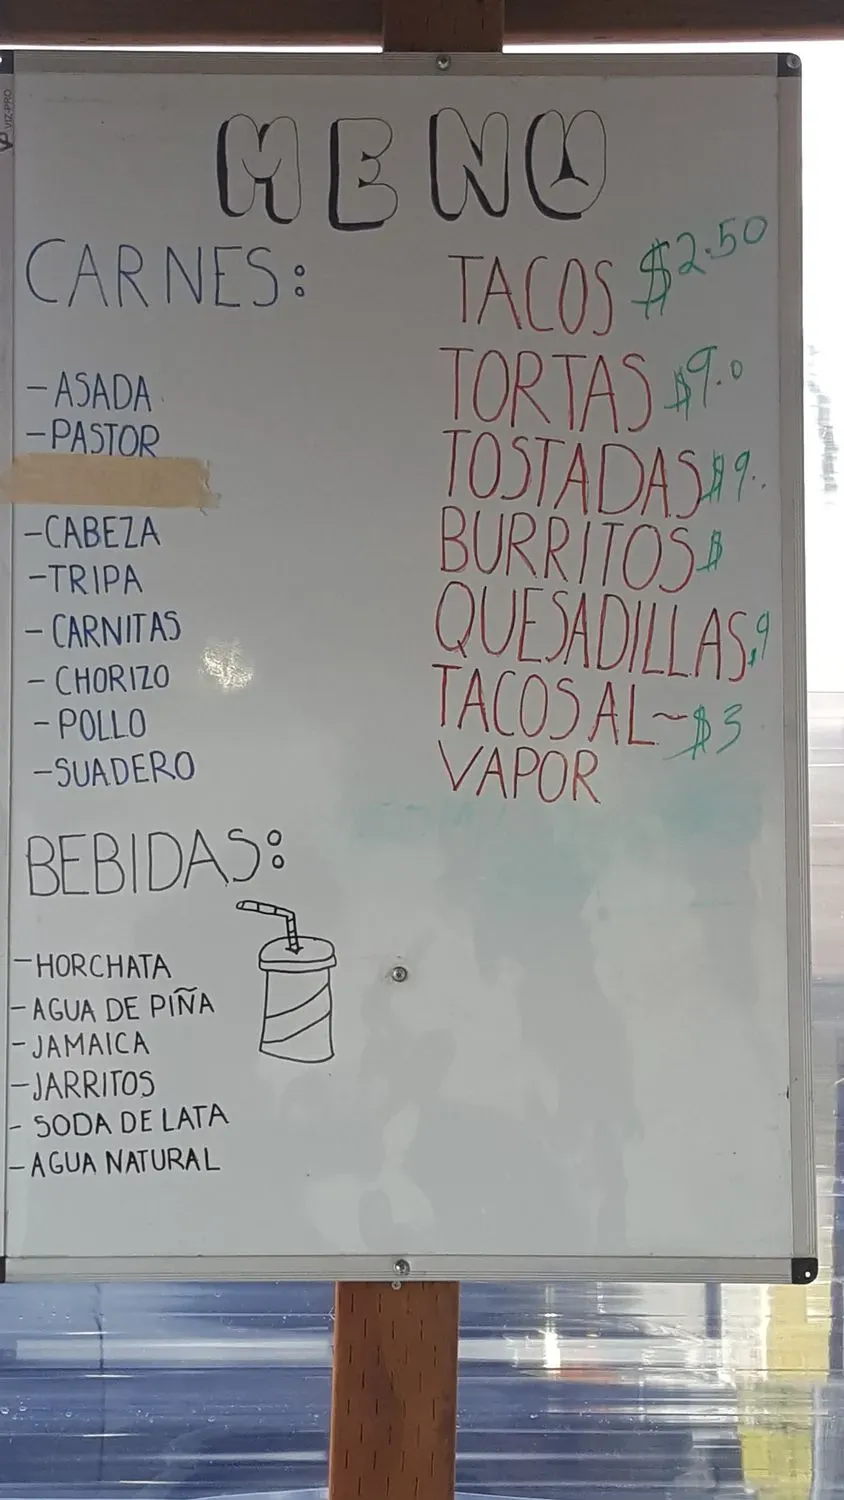 VIZ-PRO
MENU
CARNES:
- ASADA
- PASTOR
- CABEZA
- TRIPA
- CARNITAS
- CHORIZO
- POLLO
- SUADERO
BEBIDAS:
- HORCHATA
- AGUA DE PIÑA
- JAMAICA
- JARRITOS
- SODA DE LATA
- AGUA NATURAL
TACOS $2.50
TORTAS $9.0
TOSTADAS $9..
BURRITOS $
QUESADILLAS $9
TACOS AL~ $3
VAPOR